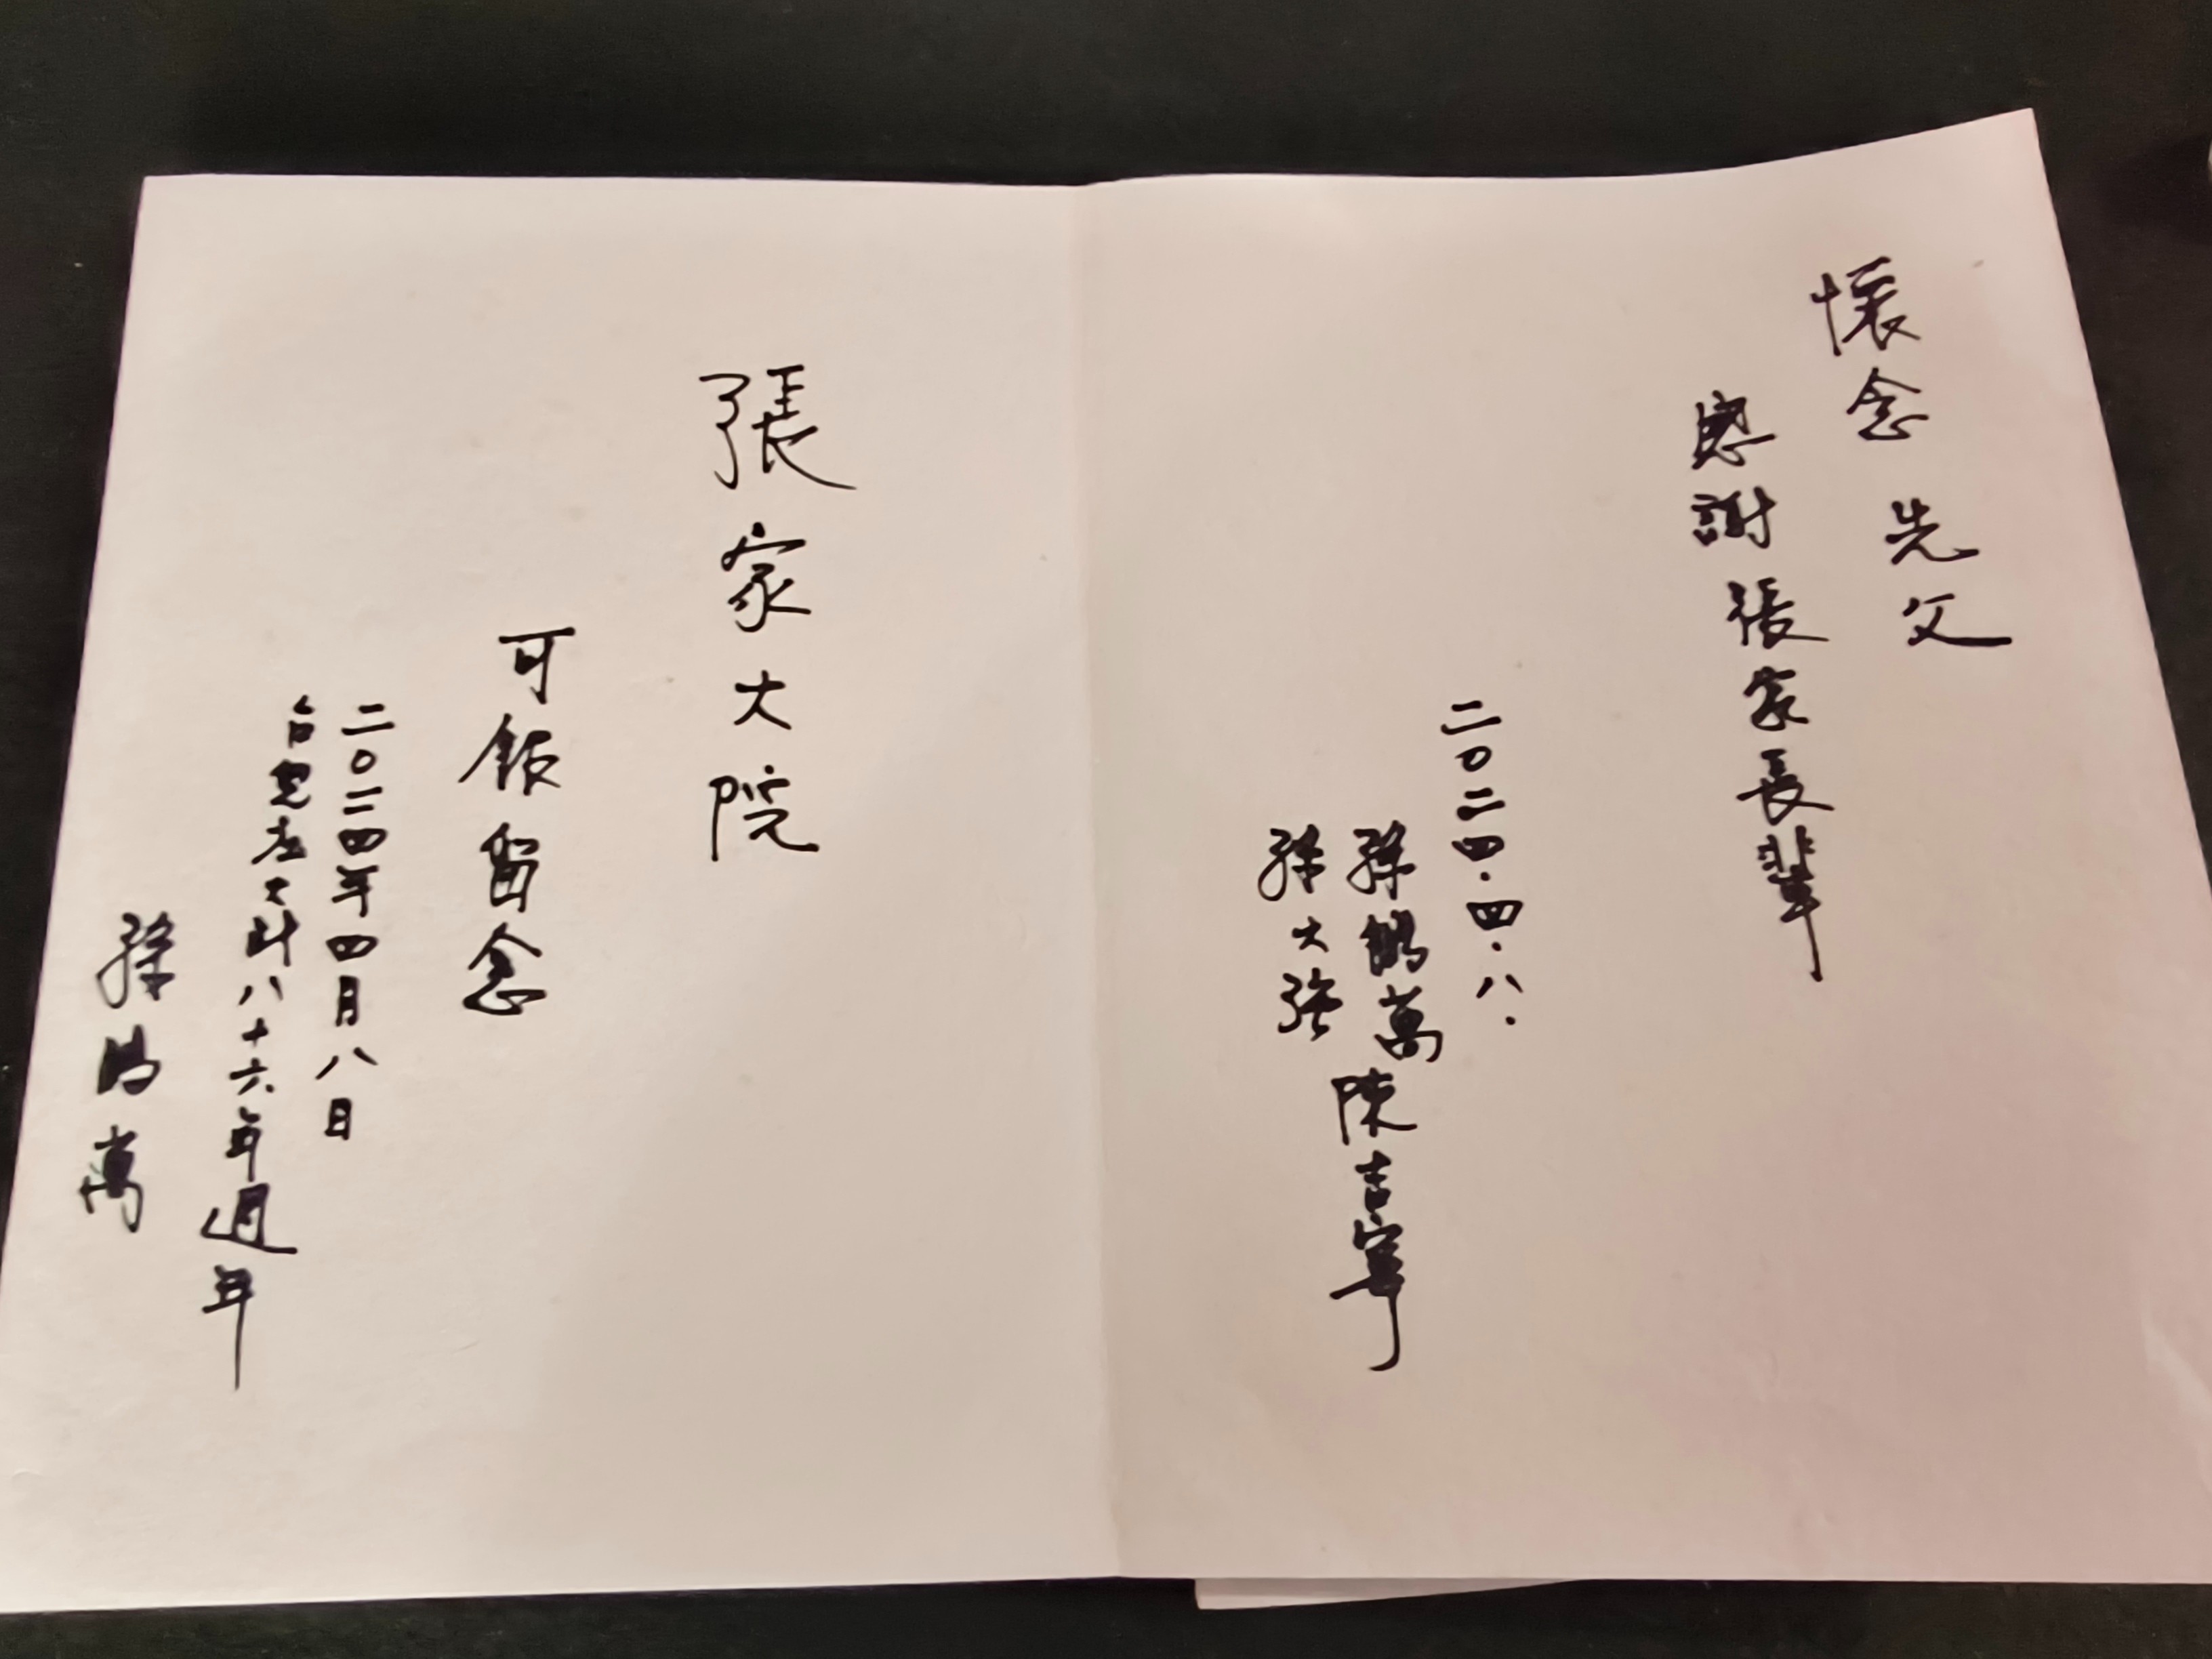 懷念 先父
感謝張家長輩
二〇二四.四.八.
孫鶴萬 陳吉寧
孫大強
張家大院
可飯留念
二〇二四年四月八日
台兒庄大 八十六年週年
孫 萬